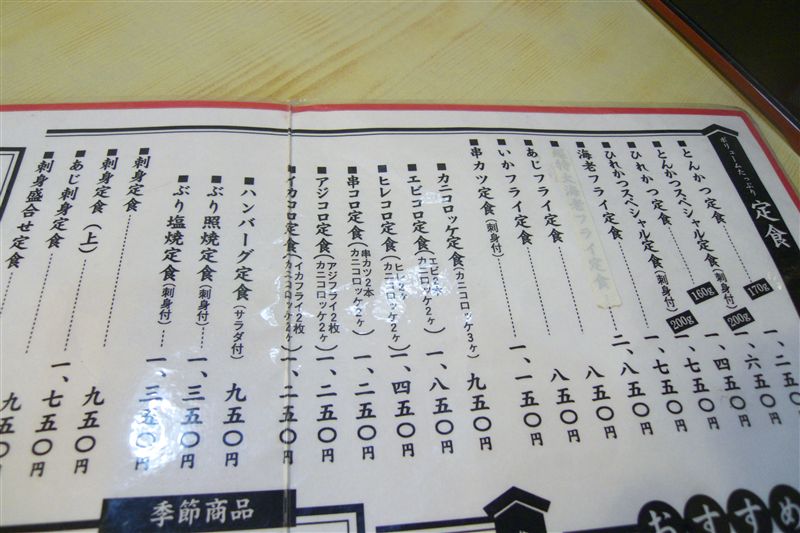 ボリュームたっぷり 定食
■とんかつ定食 170g 一、二五〇
■とんかつスペシャル定食(刺身付) 200g 一、六五〇円
■ひれかつ定食 160g 一、四五〇円
■ひれかつスペシャル定食(刺身付) 200g 一、七五〇円
■海老フライ定食 一、七五〇円
大海老フライ定食 二、八五〇円
■あじフライ定食 八五〇円
■いかフライ定食 八五〇円
■串カツ定食(刺身付) 一、一五〇円
■カニコロッケ定食(カニコロッケ3ヶ) 九五〇円
■エビコロ定食(エビ2本 カニコロッケ2ヶ) 一、八五〇円
■ヒレコロ定食(ヒレ2ヶ カニコロッケ2ヶ) 一、四五〇円
■串コロ定食(串カツ2本 カニコロッケ2ヶ) 一、二五〇円
■アジコロ定食(アジフライ2枚 カニコロッケ2ヶ) 一、二五〇円
■イカコロ定食(イカフライ2枚 カニコロッケ2ヶ) 一、二五〇円
■ハンバーグ定食(サラダ付) 九五〇円
■ぶり照焼定食(刺身付) 一、三五〇円
■ぶり塩焼定食(刺身付) 一、三五〇円
■刺身定食 九五〇円
■刺身定食(上) 一、七五〇円
■あじ刺身定食 九五〇円
■刺身盛合せ定食
季節商品
おすすめ